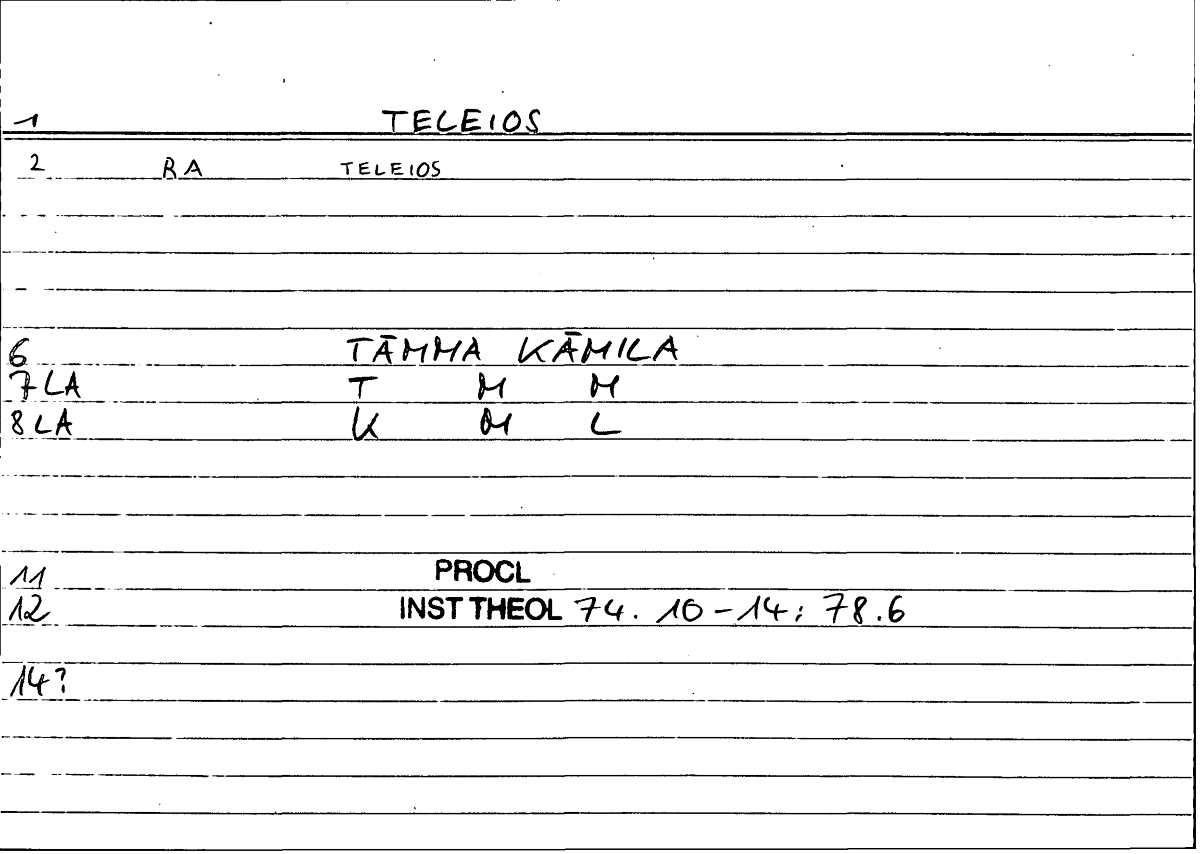 1 TELEIOS
2 RA TELEIOS
6 TĀMMA KĀMILA
7 LA T M M
8 LA K M L
11 PROCL
12 INST THEOL 74. 10-14; 78.6
14?